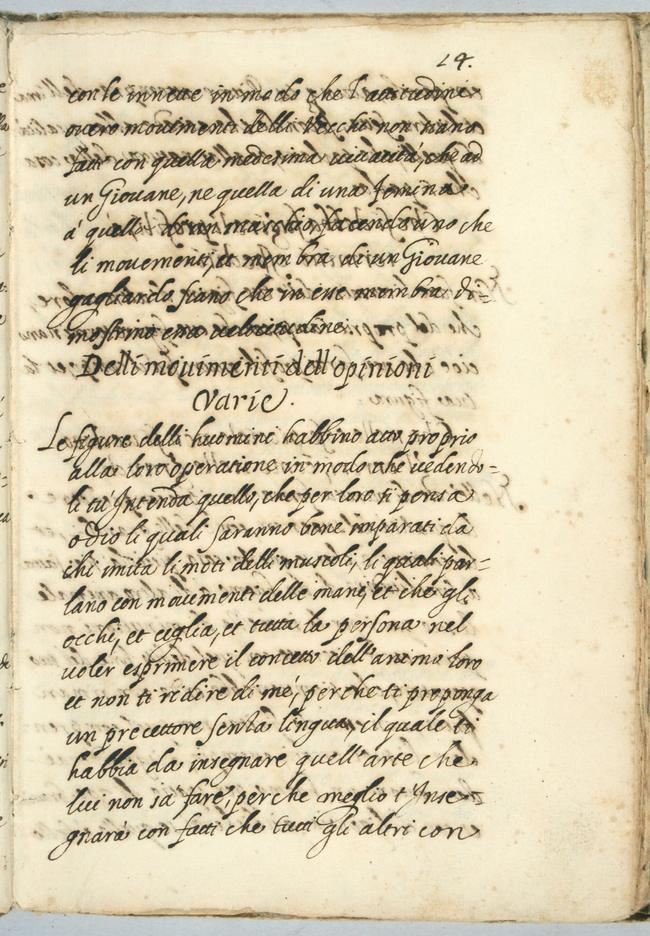 14.
conle innete in modo che l'attitudini
overo movimenti delli Vecchi non siano
fatti con quella medesima vivacità, che ad
un Giovane, ne quella di una femina
á quella di un maschio, facendo uno che
li movementi, et membra di un Giovane
gagliardo siano che in esse membra di=
mostrino una velocitudine.
Delli movimenti dell'opinioni
varie.
Le figure delli huomini habbino atto proprio
alla loro operatione in modo che vedendo=
li tu Intenda quello, che per loro si pensa
o dio li quali saranno bene imparati da
chi imita li moti delli muscoli, li quali par=
lano con movimenti delle mani, et che gli
occhi, et ciglia, et tutta la persona nel
voler esprimere il concetto dell'animo loro
et non ti ridire di me, perche ti proponga
un precettore senza lingua, il quale ti
habbia da insegnare quell'arte che
lui non sà fare, perche meglio t'Inse=
gnarà con fatti che tutti gli altri con